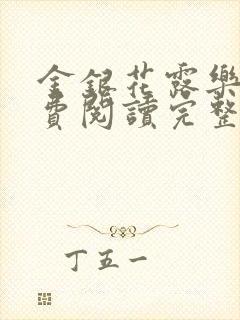 金銀花露樂
費閱讀完整
丁五一